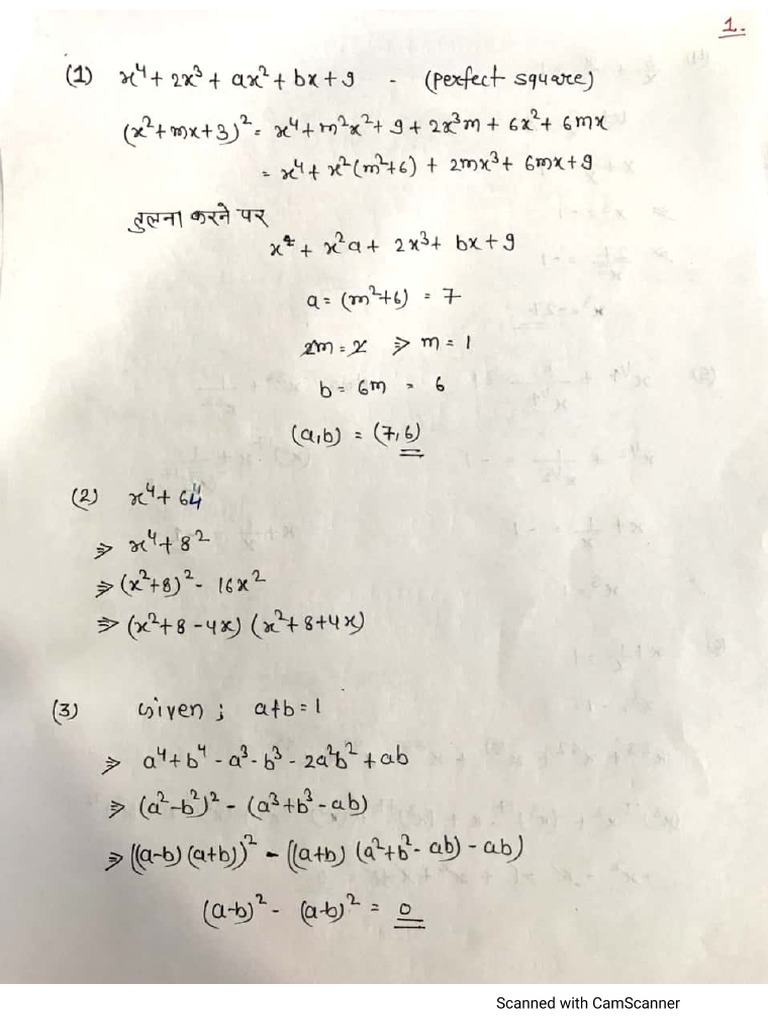 1.
(1) x⁴ + 2x³ + ax² + bx + 9 - (perfect square)
(x²+mx+3)² = x⁴ + m²x² + 9 + 2x³m + 6x² + 6mx
= x⁴ + x²(m²+6) + 2mx³ + 6mx + 9
तुलना करने पर
x⁴ + x²a + 2x³ + bx + 9
a = (m²+6) = 7
2m = 2 ⇒ m = 1
b = 6m = 6
(a,b) = (7,6)
(2) x⁴ + 64
⇒ x⁴ + 8²
⇒ (x²+8)² - 16x²
⇒ (x²+8-4x) (x²+8+4x)
(3) Given; a+b=1
⇒ a⁴+b⁴ - a³-b³ - 2a²b² + ab
⇒ (a²-b²)² - (a³+b³-ab)
⇒ ((a-b)(a+b))² - ((a+b) (a²+b²-ab) - ab)
(a-b)² - (a-b)² = 0
Scanned with CamScanner